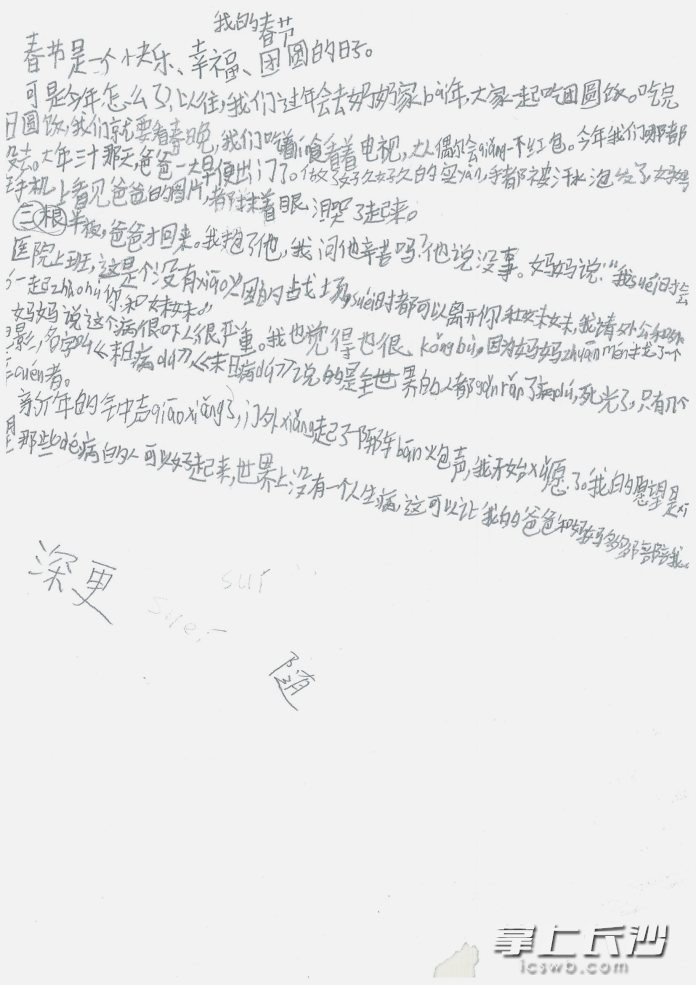 我的春节
春节是一个快乐、幸福、团圆的日子。
可是今年怎么了,以往,我们过年会去奶奶家bài年,大家一起吃团圆饭。吃完
圆饭,我们就要看春晚,我们吃着 看着电视,大人偶尔会qiǎng一下红包。今年我们哪都
没去。大年三十那天,爸爸一大早便出门了。做了好久好久的实yàn,手都被汗水泡发了,奶奶
手机上看见爸爸的图片,都抹着眼泪哭了起来。
半夜,爸爸才回来。我抱了他,我问他辛苦吗?他说没事。妈妈说:“我suéi时会
医院上班,这是个没有xiāo烟的战场,suéi时都可以离开你和妹妹,我请外公和外
一起zhào你和妹妹。”
妈妈说这个病很吓人很严重。我也觉得也很kǒngbù,因为妈妈zhuān门
影,名字叫《末日病dú》,《末日病dú》说的是全世界的人都gǎnrǎn了病dú,死光了,只有几个
者。
新年的钟声qiāoxiǎng了,门外xiǎng起了阵阵biān炮声,我开始xǔ愿了。我的愿望是
那些 病的人可以好起来,世界上没有一个人生病,这可以让我的爸爸和妈妈多多陪陪我。
深更
sur
suer
随
掌上长沙
icswb.com